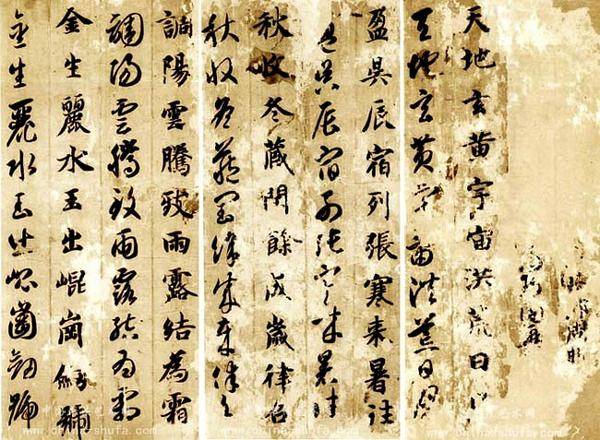 天地玄黃宇宙洪荒日
天地玄黃宇宙洪荒日月
盈昃辰宿列張寒来暑往
盈昃辰宿列張寒来暑往
秋收冬藏閏餘成歲律召
秋收冬藏閏餘成歲律召
調陽雲騰致雨露結為霜
調陽雲騰致雨露結為霜
金生麗水玉出崐崗劒號
金生麗水玉出崐崗劒號